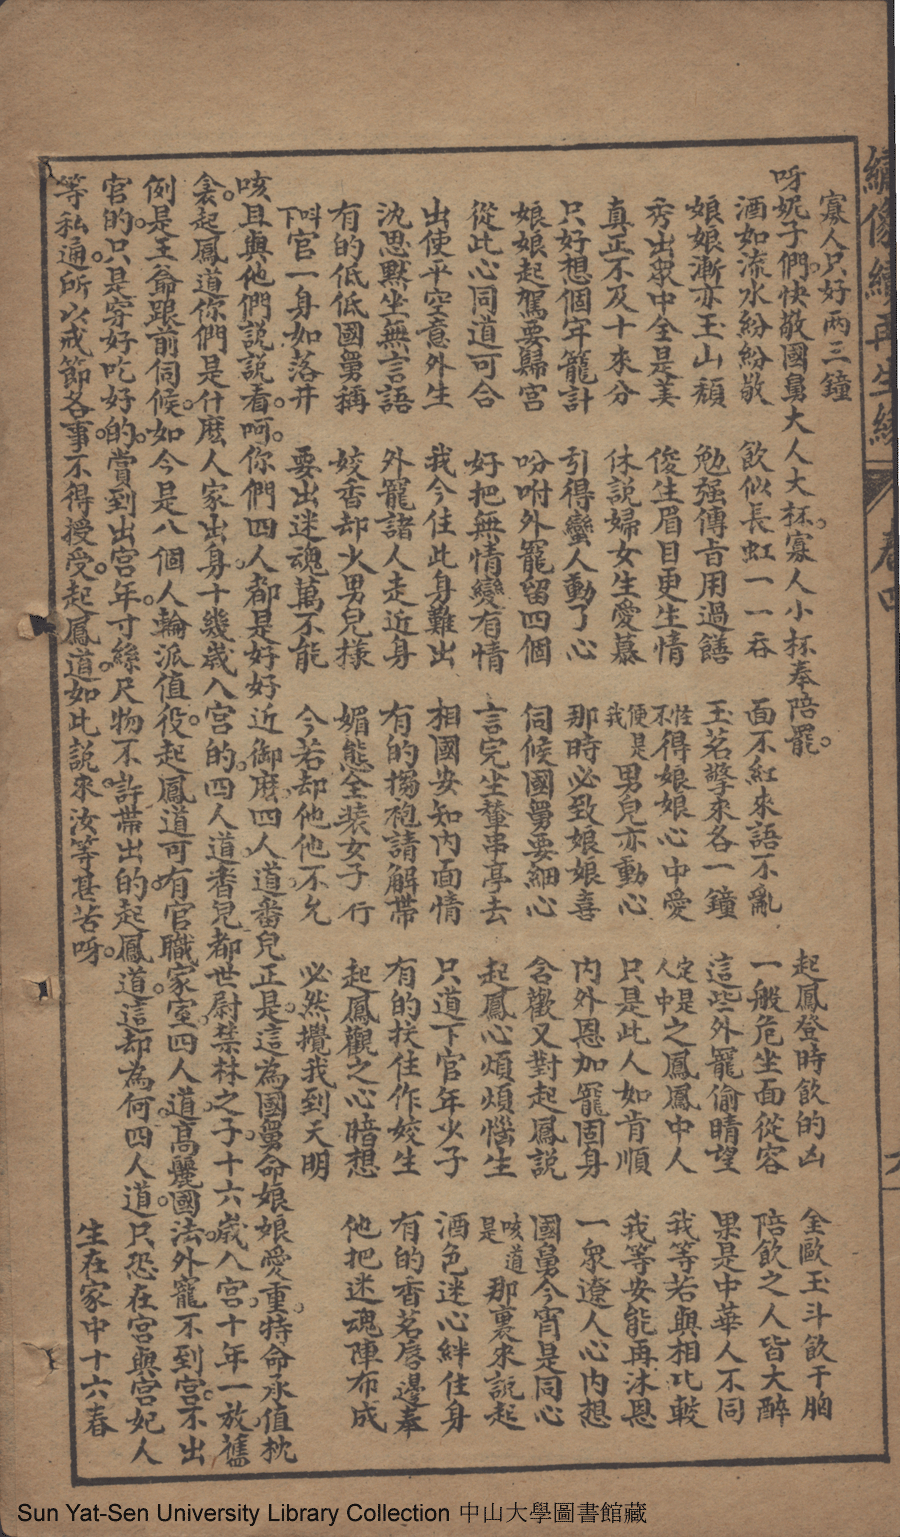 繡像續再生緣　卷四　六
寡人只好兩三鐘
呀妮子們。快敬國舅大人大杯。寡人小杯奉陪罷。　起鳳登時飲的凶　全歐玉斗飲干胸
酒如流水紛紛敬　飲似長虹一一吞　面不紅來語不亂　一般危坐面從容　陪飲之人皆大醉
娘娘漸亦玉山頹　勉强傳旨用過饍　玉茗擎來各一鐘　這些外寵偷睛望　果是中華人不同
秀出眾中全是美　俊生眉目更生情　怪不得娘娘心中愛　定是人中之鳳鳳中人　我等若與相比較
真正不及十來分　休說婦女生愛慕　便是我男兒亦動心　只是此人如肯順　我等安能再沐恩
只好想個牢籠計　引得蠻人動了心　那時必致娘娘喜　內外恩加寵固身　一眾遼人心內想
娘娘起駕要歸宮　吩咐外寵留四個　伺候國舅要細心　含歡又對起鳳說　國舅今宵是同心
從此心同道可合　好把無情變有情　言完坐輦串亭去　起鳳心煩煩惱生　咳道是那裏來說起
出使平空意外生　我今住此身難出　相國安知內面情　只道下官年少子　酒色迷心絆住身
沈思默坐無言語　外寵諸人走近身　有的搊袍請解帶　有的扶住作姣生　有的香茗唇邊奉
有的低低國舅稱　姣香却火男兒樣　媚態全裝女子行　起鳳觀之心暗想　他把迷魂陣布成
呌下官一身如落井　要出迷魂萬不能　今若却他他不允　必然攪我到天明
咳且與他們說說看。呵。你們四人都是好好近御麽。四人道。番兒正是。這為國舅命娘娘愛重。特命承值枕
衾。起鳳道你們是什麽人家出身。十幾歲入宮的。四人道。畨兒都世尉禁林之子。十六歲入宮。十年一放舊
例是王爺跟前伺候。如今是八個人輪派值役。起鳳道可有官職家室。四人道。高麗國法。外寵不到宮。不出
官的。只是穿好吃好的。賞到出宮年。寸絲尺物不許帶出的。起鳳道。這却為何。四人道。只恐在宮與宮妃人
等私通。所以戒節各事。不得授受。起鳳道。如此說來。汝等甚苦呀。　生在家中十六春
Sun Yat-Sen University Library Collection 中山大學圖書館藏